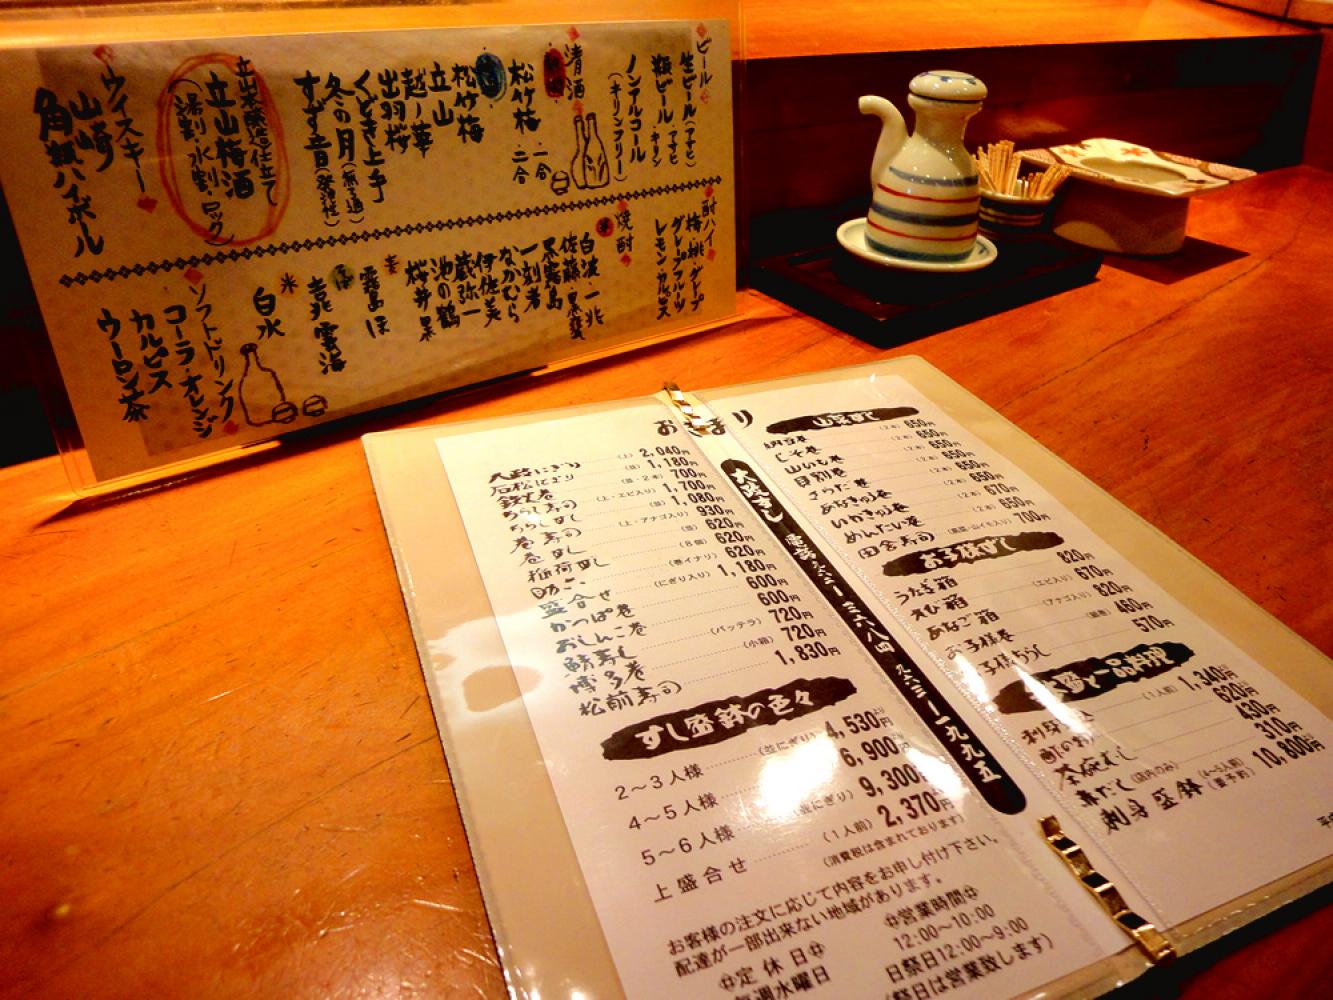 ビール
生ビール(アサヒ)
瓶ビール・アサヒ・キリン
ノンアルコール
(キリンフリー)
清酒
松竹梅 一合 二合
松竹梅
立山
越ノ華
出羽桜
くどき上手
冬の月(無ろ過)
すず音(発泡性)
立山本醸造仕立て
立山梅酒
(湯割・水割・ロック)
ウイスキー
山崎
角瓶ハイボール
酎ハイ
梅・桃・グレープ
グレープフルーツ
レモン・カルピス
焼酎
白波・一兆
佐藤・黒麦
黒霧島
一刻者
なかむら
伊佐美
蔵弥一
池の鶴
桜井黒
麦
霧島ほ
そば
吉兆雲海
米
白水
ソフトドリンク
コーラ・オレンジ
カルピス
ウーロン茶
石松にぎり (並) 1,180円
鉄火巻 (並・2本) 700円
ちらし寿司 (上・エビ入り) 1,700円
ちらしすし (並) 1,080円
巻寿司 (上・アナゴ入り) 930円
巻すし (並) 620円
稲荷すし (8個) 620円
助六 (巻イナリ) 620円
盛合せ (にぎり入り) 1,180円
かっぱ巻 600円
おしんこ巻 600円
鯖寿し (バッテラ) 720円
博多巻 (小箱) 720円
松前寿司 1,830円
すし盛鉢の色々
2〜3人様 (並にぎり) 4,530円より
4〜5人様 6,900円
5〜6人様 (並にぎり) 9,300円
上盛合せ (1人前) 2,370円
(消費税は含まれております)
お客様の注文に応じて内容をお申し付け下さい。
配達が一部出来ない地域があります。
定休日
毎週水曜日
営業時間
12:00〜10:00
日祭日12:00〜9:00
(祭日は営業致します)
電話 九六二ー三六八四
九六三ー一九九五
山菜すし
しそ巻 (2本) 650円
山いも巻 (2本) 650円
貝割巻 (2本) 650円
さらだ巻 (2本) 650円
あなきゅう巻 (2本) 650円
いかきゅう巻 (2本) 670円
めんたい巻 (2本) 650円
田舎寿司 (高菜・山イモ入り) 700円
お子様すし
うなぎ箱 820円
えび箱 (エビ入り) 670円
あなご箱 (アナゴ入り) 820円
お子様巻 460円
お子様ちらし 570円
(1人前) 1,340円
酢のもの 620円
茶碗むし 430円
赤だし (店内のみ) 310円
刺身盛鉢 (4〜5人前) (要予約) 10,800円